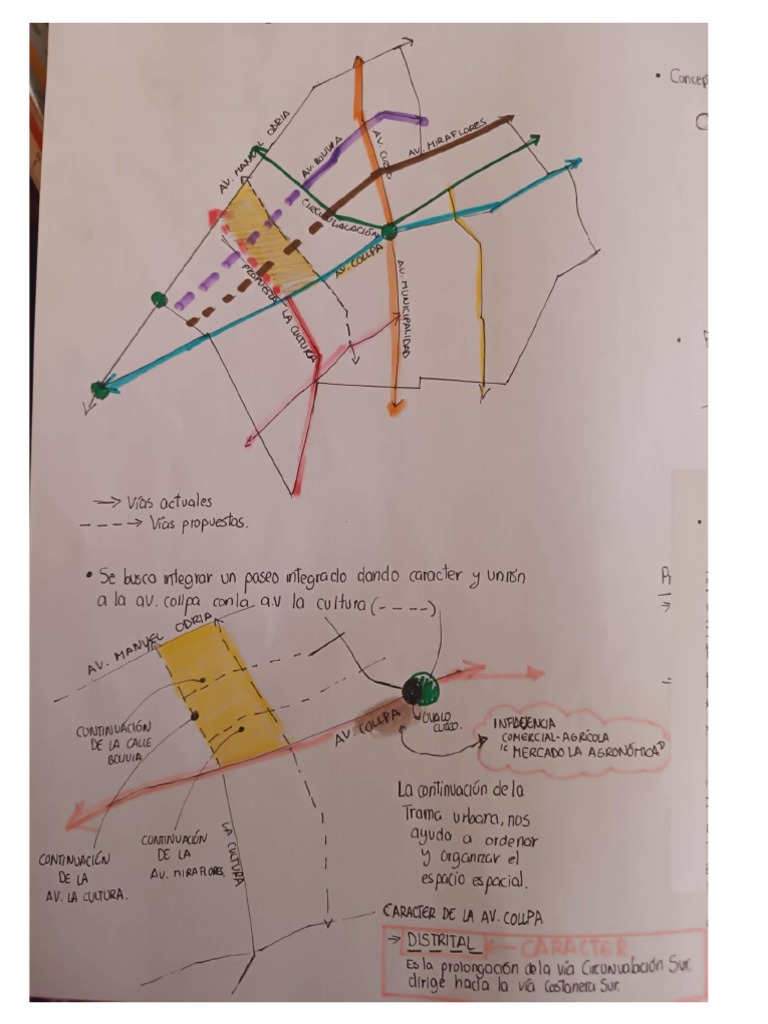 • Concep
AV. MANUEL ODRIA
AV. BOLIVIA
AV. CUSCO
AV. MIRAFLORES
CIRCUNVALACIÓN
AV. COLLPA
PROPUESTA - LA CULTURA
AV. MUNICIPALIDAD
→ Vías actuales
- - - -> Vías propuestas.
• Se busca integrar un paseo integrado dando caracter y unión
a la av. collpa con la a.v la cultura (- - - -)
AV. MANUEL ODRIA
CONTINUACIÓN
DE LA CALLE
BOLIVIA
AV. COLLPA
ÓVALO
CUSCO.
INFLUENCIA
COMERCIAL-AGRÍCOLA
"MERCADO LA AGRONÓMICA"
La continuación de la
Trama urbana, nos
ayuda a ordenar
y organizar el
espacio espacial.
CONTINUACIÓN
DE LA
AV. LA CULTURA.
CONTINUACIÓN
DE LA
AV. MIRAFLORES
LA CULTURA
CARACTER DE LA AV. COLLPA
→ DISTRITAL ← CARACTER
Es la prolongación de la vía Circunvalación Sur,
dirige hacia la vía Costanera Sur.